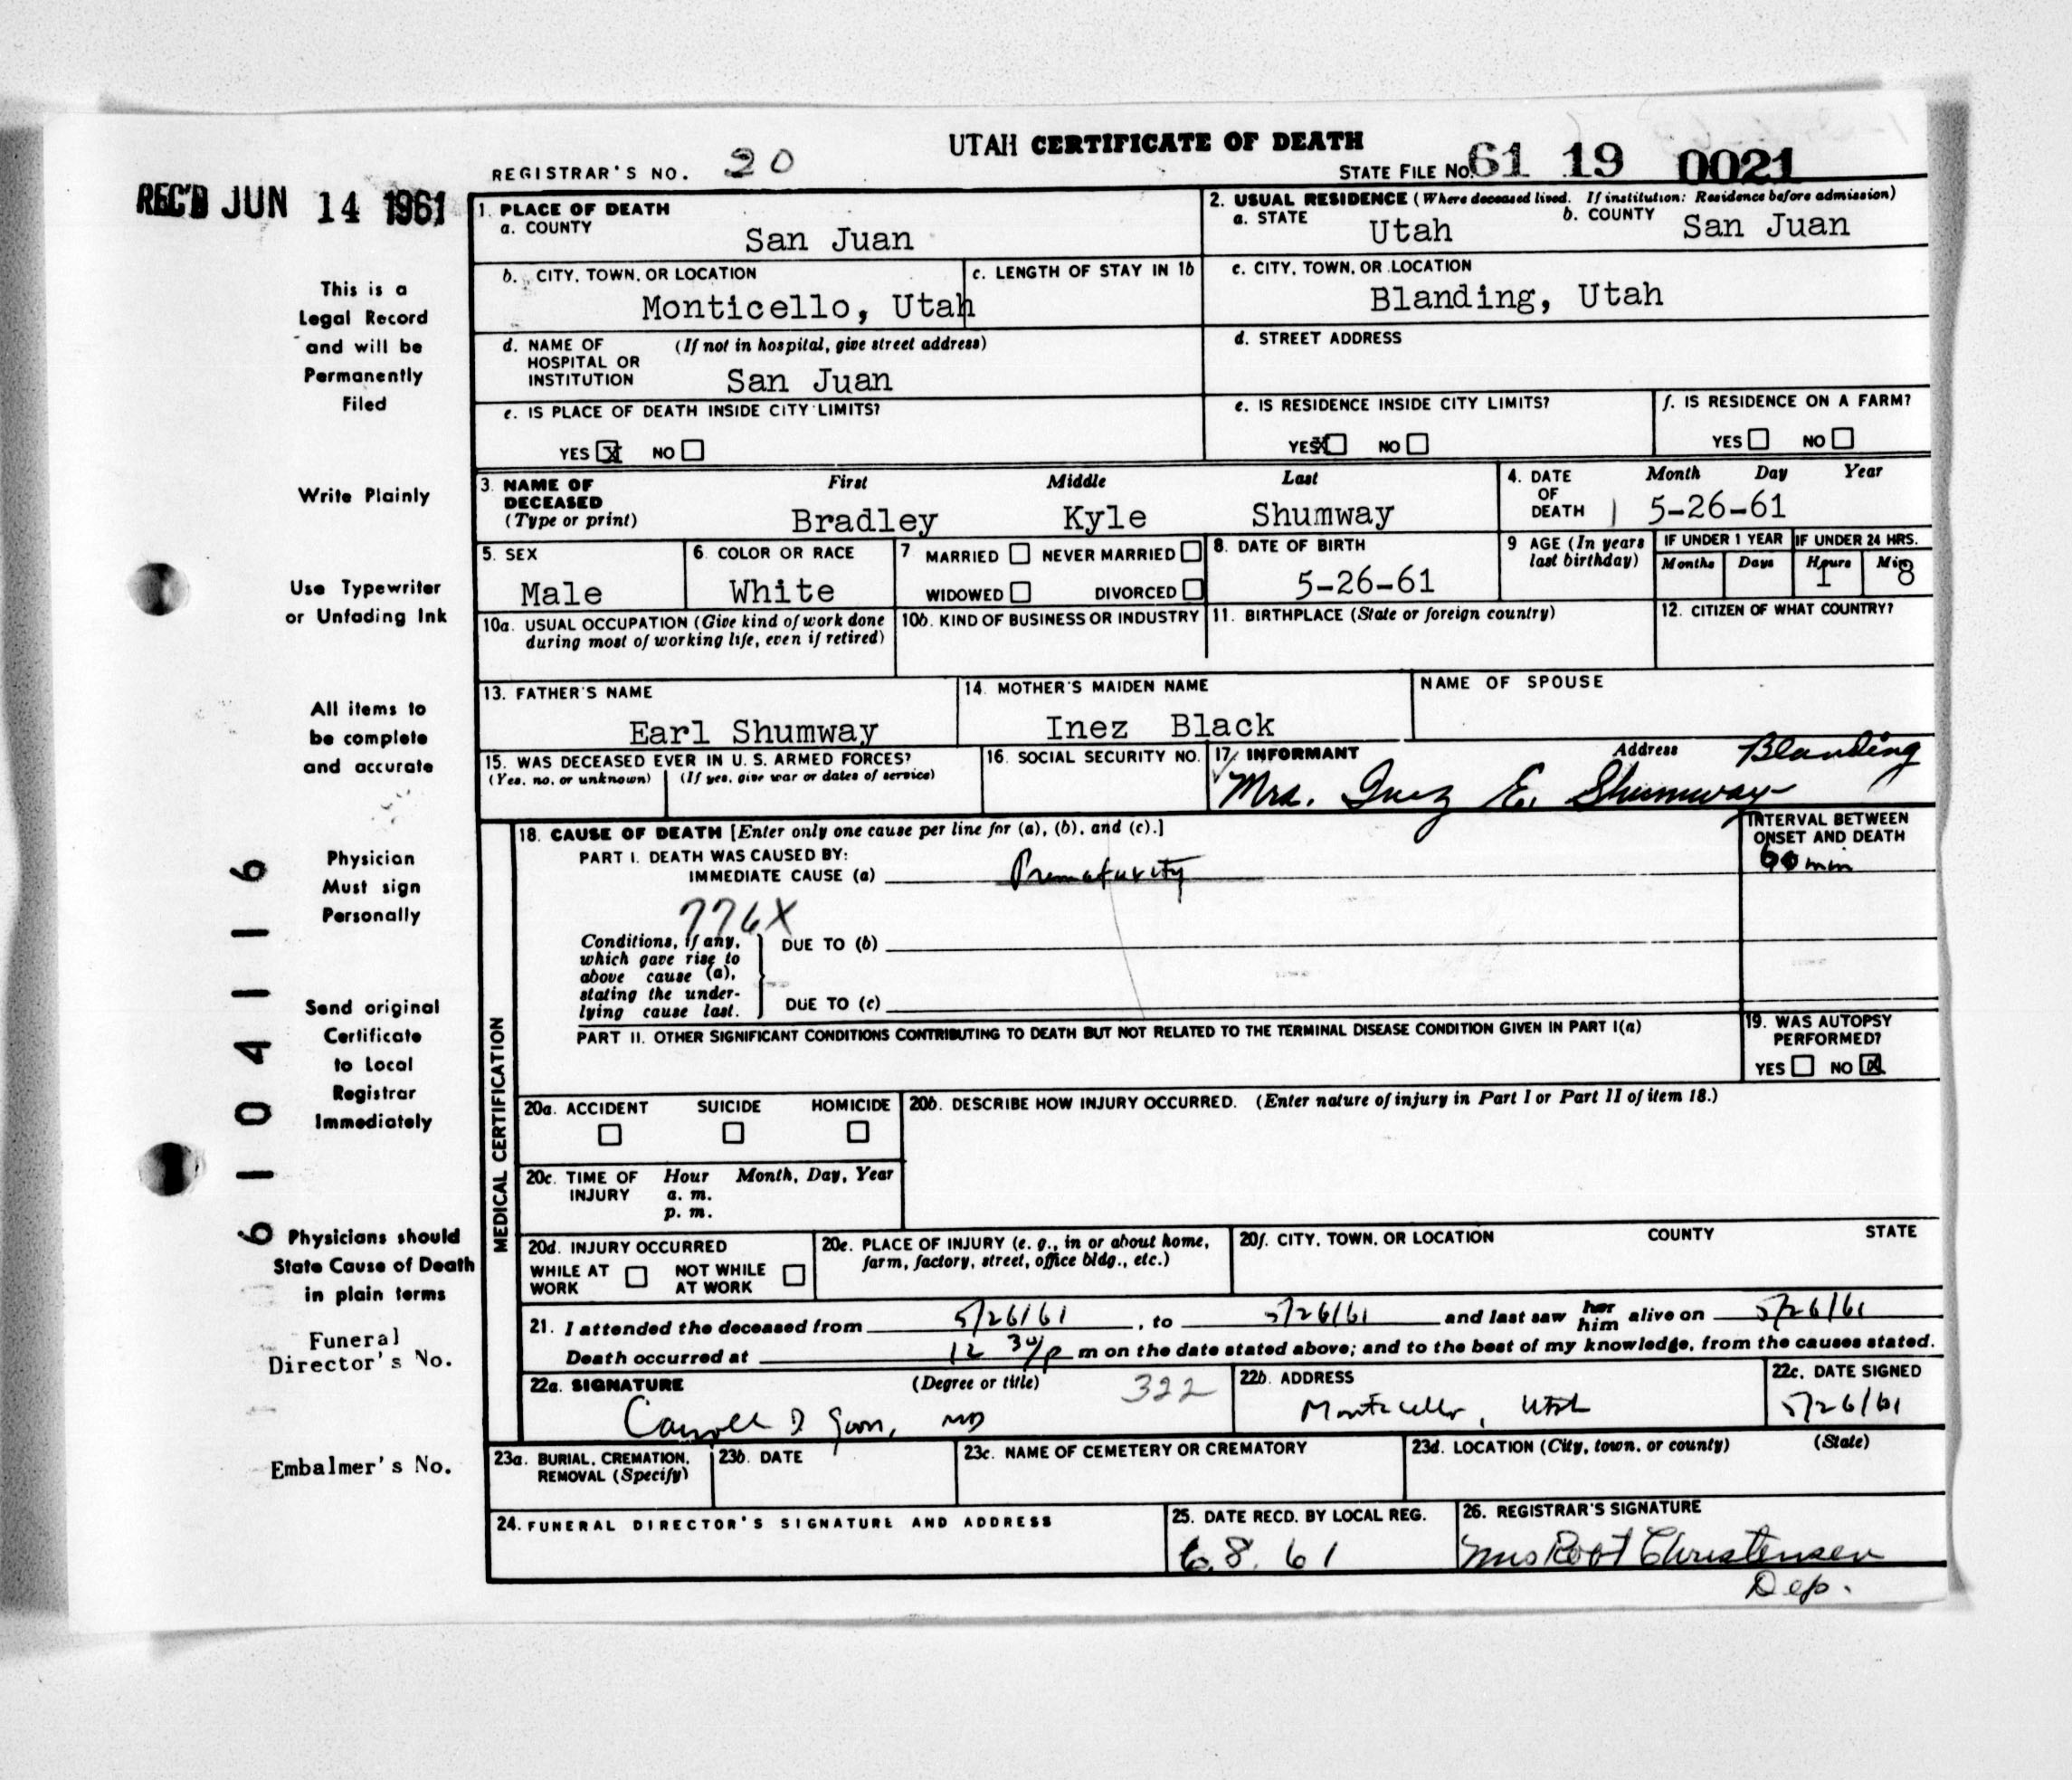 UTAH CERTIFICATE OF DEATH
REGISTRAR'S NO. 20
STATE FILE NO. 61 19 0021
REC'D JUN 14 1961
This is a
Legal Record
and will be
Permanently
Filed
Write Plainly
Use Typewriter
or Unfading Ink
All items to
be complete
and accurate
Physician
Must sign
Personally
Send original
Certificate
to Local
Registrar
Immediately
Physicians should
State Cause of Death
in plain terms
Funeral
Director's No.
Embalmer's No.
61 04116
1. PLACE OF DEATH
a. COUNTY
San Juan
2. USUAL RESIDENCE (Where deceased lived. If institution: Residence before admission)
a. STATE Utah
b. COUNTY San Juan
b. CITY, TOWN, OR LOCATION
Monticello, Utah
c. LENGTH OF STAY IN 1b
c. CITY, TOWN, OR LOCATION
Blanding, Utah
d. NAME OF (If not in hospital, give street address)
HOSPITAL OR
INSTITUTION San Juan
d. STREET ADDRESS
e. IS PLACE OF DEATH INSIDE CITY LIMITS?
YES X NO
e. IS RESIDENCE INSIDE CITY LIMITS?
YES X NO
f. IS RESIDENCE ON A FARM?
YES NO
3. NAME OF
DECEASED
(Type or print)
First Middle Last
Bradley Kyle Shumway
4. DATE
OF
DEATH
Month Day Year
5-26-61
5. SEX
Male
6. COLOR OR RACE
White
7 MARRIED NEVER MARRIED
WIDOWED DIVORCED
8. DATE OF BIRTH
5-26-61
9 AGE (In years
last birthday)
IF UNDER 1 YEAR
Months Days
IF UNDER 24 HRS.
Hours Min
1 8
10a. USUAL OCCUPATION (Give kind of work done
during most of working life, even if retired)
10b. KIND OF BUSINESS OR INDUSTRY
11. BIRTHPLACE (State or foreign country)
12. CITIZEN OF WHAT COUNTRY?
13. FATHER'S NAME
Earl Shumway
14. MOTHER'S MAIDEN NAME
Inez Black
NAME OF SPOUSE
15. WAS DECEASED EVER IN U. S. ARMED FORCES?
(Yes, no, or unknown) (If yes, give war or dates of service)
16. SOCIAL SECURITY NO.
17 INFORMANT Address Blanding
Mrs. Inez E. Shumway
MEDICAL CERTIFICATION
18. CAUSE OF DEATH [Enter only one cause per line for (a), (b), and (c).]
PART I. DEATH WAS CAUSED BY:
IMMEDIATE CAUSE (a) Prematurity
INTERVAL BETWEEN
ONSET AND DEATH
60 min
776X
Conditions, if any,
which gave rise to
above cause (a),
stating the under-
lying cause last.
DUE TO (b)
DUE TO (c)
PART II. OTHER SIGNIFICANT CONDITIONS CONTRIBUTING TO DEATH BUT NOT RELATED TO THE TERMINAL DISEASE CONDITION GIVEN IN PART I(a)
19. WAS AUTOPSY
PERFORMED?
YES NO X
20a. ACCIDENT SUICIDE HOMICIDE
20b. DESCRIBE HOW INJURY OCCURRED. (Enter nature of injury in Part I or Part II of item 18.)
20c. TIME OF Hour Month, Day, Year
INJURY a. m.
p. m.
20d. INJURY OCCURRED
WHILE AT NOT WHILE
WORK AT WORK
20e. PLACE OF INJURY (e. g., in or about home,
farm, factory, street, office bldg., etc.)
20f. CITY, TOWN, OR LOCATION COUNTY STATE
21. I attended the deceased from 5/26/61, to 5/26/61 and last saw her him alive on 5/26/61
Death occurred at 12 30/p m on the date stated above; and to the best of my knowledge, from the causes stated.
22a. SIGNATURE (Degree or title) 322
Carroll D Goon, MD
22b. ADDRESS
Monticello, Utah
22c. DATE SIGNED
5/26/61
23a. BURIAL, CREMATION,
REMOVAL (Specify)
23b. DATE
23c. NAME OF CEMETERY OR CREMATORY
23d. LOCATION (City, town, or county) (State)
24. FUNERAL DIRECTOR'S SIGNATURE AND ADDRESS
25. DATE RECD. BY LOCAL REG.
6.8.61
26. REGISTRAR'S SIGNATURE
Mrs Robt Christensen
Dep.